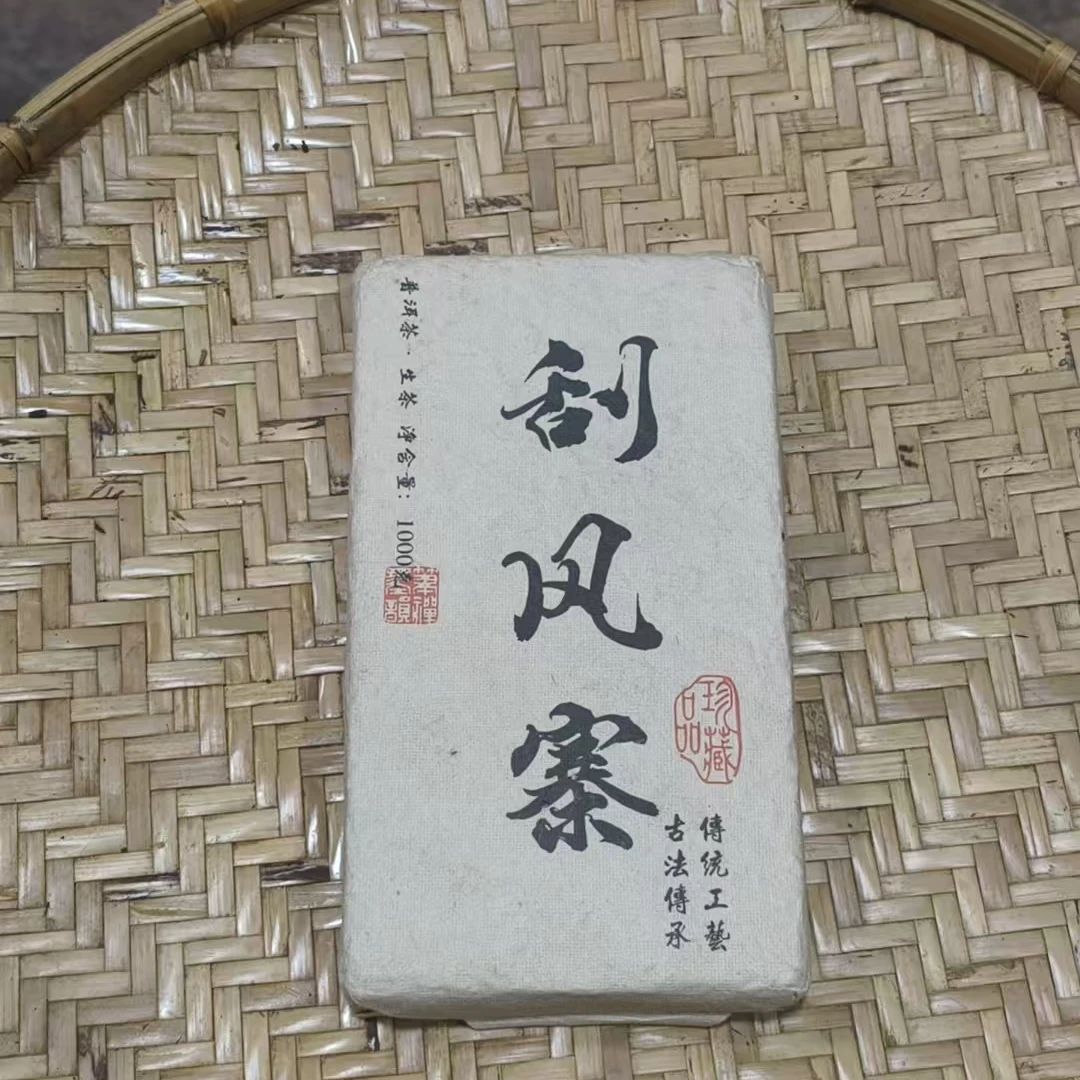 刮风寨
普洱茶·生茶 净含量：1000克
珍藏
品
傳统工藝
古法傳承